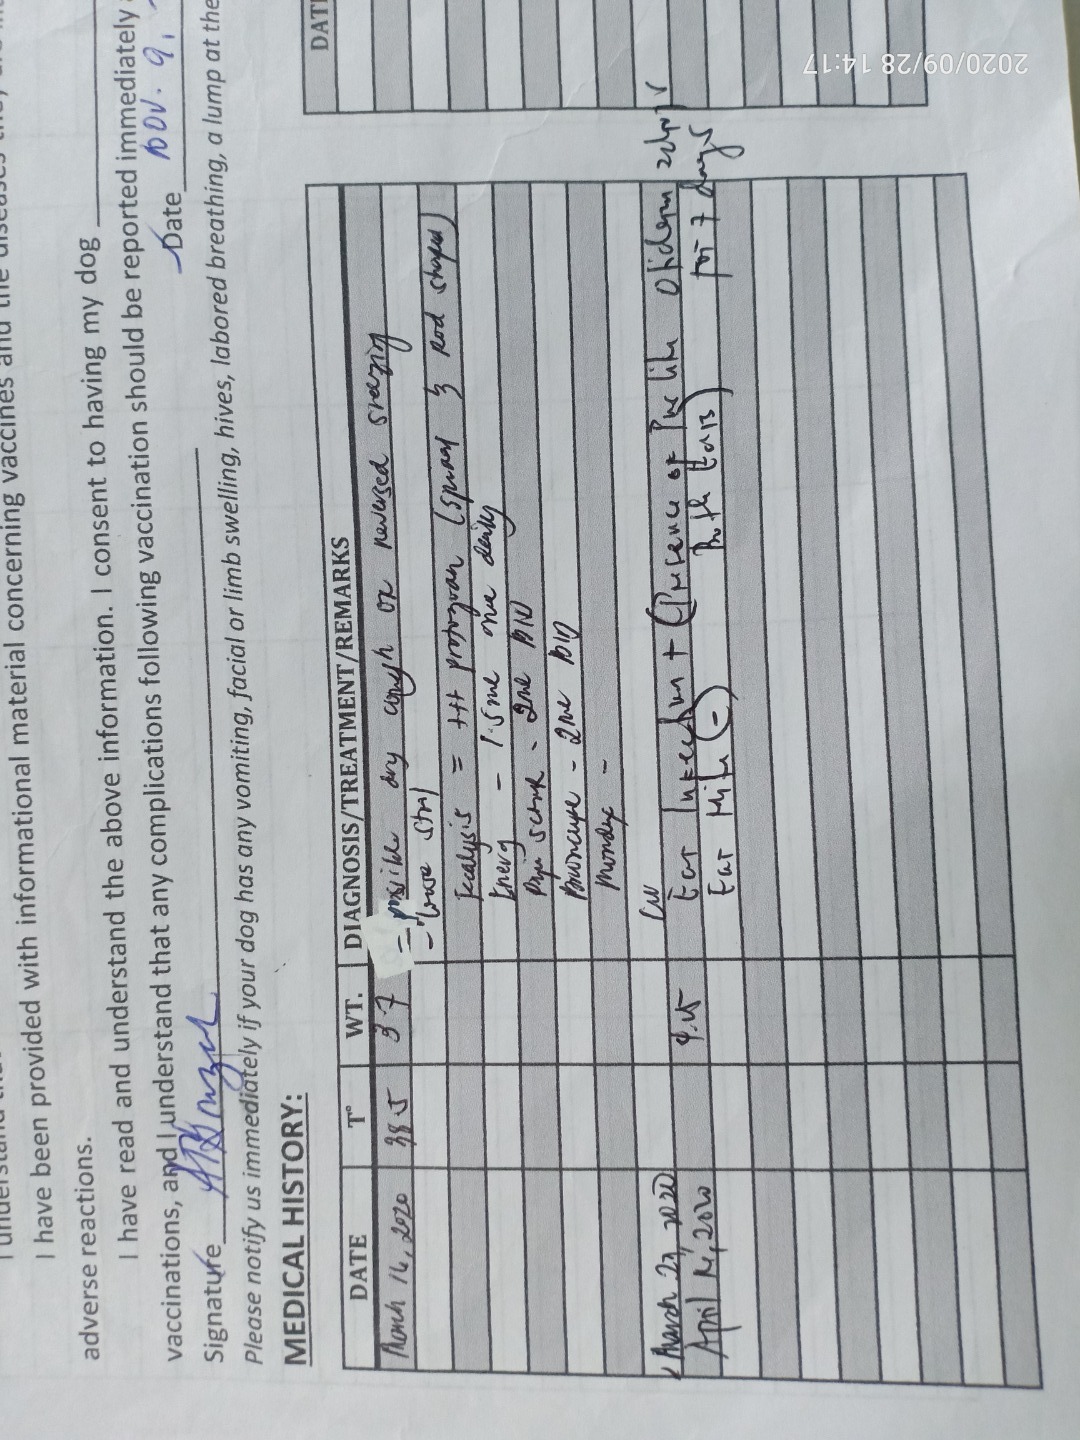 I have been provided with informational material concerning vaccines and the diseases
adverse reactions.
I have read and understand the above information. I consent to having my dog
vaccinations, and I understand that any complications following vaccination should be reported immediately
Signature Date Nov. 9,
Please notify us immediately if your dog has any vomiting, facial or limb swelling, hives, labored breathing, a lump at the
MEDICAL HISTORY:
DATE T° WT. DIAGNOSIS/TREATMENT/REMARKS DAT
March 16, 2020 38.5 3.7 = possible dry cough or reversed sneezing
= loose stool
Fecalysis = +++ protozoan (spiral & rod shaped)
- 1.5ml once daily
- 2ml BID
- 2ml BID
March 27, 2020 Ear Infection + (Presence of Pus like Otiderm
April 2020 Ear Mite (-) Both Ears) for 7 days
2020/09/28 14:17